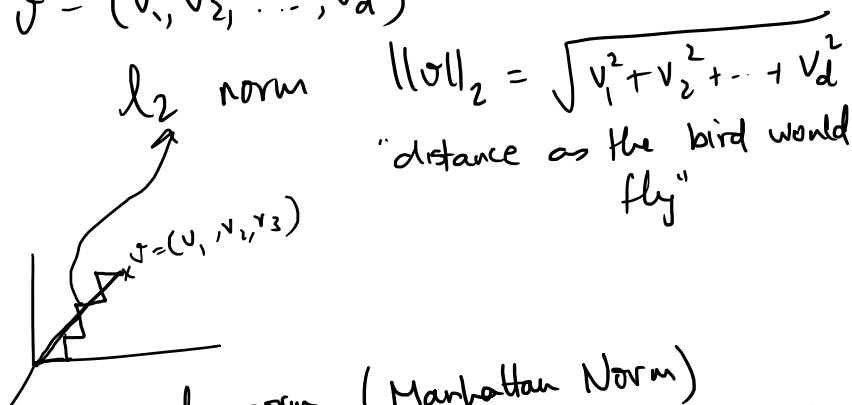 v = (v₁, v₂, ..., v_d)
l₂ norm ||v||₂ = √(v₁² + v₂² + ... + v_d²)
"distance as the bird would
fly"
v = (v₁, v₂, v₃)
norm (Manhattan Norm)